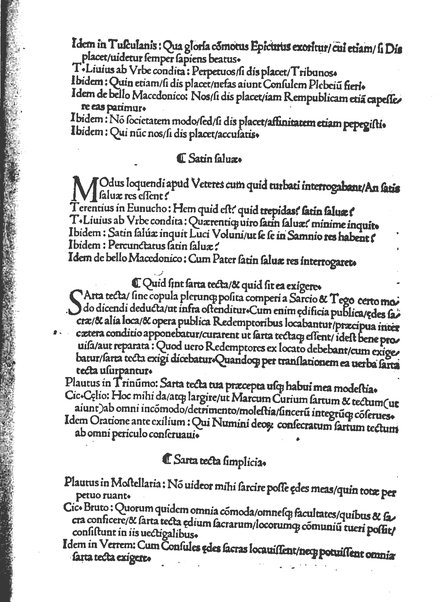 Idem in Tusculanis: Qua gloria cōmotus Epicurius exoritur/ cui etiam/ si Dis
placet/uidetur semper sapiens beatus.
T. Liuius ab Vrbe condita: Perpetuos/si dis placet/Tribunos.
Ibidem: Quin etiam/si dis placet/nefas aiunt Consulem Plebeiū fieri.
Idem de bello Macedonico: Nos/si dis placet/iam Rempublicam etiā capesse/
re eas patimur.
Ibidem: Nō societatem modo/sed/si dis placet/affinitatem etiam pepegisti.
Ibidem: Qui nūc nos/si dis placet/accusatis.
¶ Satin saluæ.
MOdus loquendi apud Veteres cum quid turbati interrogabant/An satis
saluæ res essent?
Terentius in Eunucho: Hem quid est? quid trepidas? satin saluæ?
T. Liuius ab Vrbe condita: Quærentiq; uiro satin saluæ? minime inquit.
Ibidem: Satin saluæ inquit Luci Voluni/ut se se in Samnio res habent?
Ibidem: Percunctatus satin saluæ?
Idem de bello Macedonico: Cum Pater satin saluæ res interrogaret.
¶ Quid sint sarta tecta/& quid sit ea exigere.
SArta tecta/ sine copula plerunq; posita comperi a Sarcio & Tego certo mo/
do dicendi deducta/ut infra ostenditur. Cum enim ędificia publica/ędes sa/
cræ/& alia loca/& opera publica Redemptoribus locabantur/præcipua inter
cætera conditio apponebatur/curarent ut sarta tectaq; essent/ idest bene pro/
uisa/aut reparata: Quod uero Redemptores ex locato debebant/cum exige/
batur/sarta tecta exigi dicebatur. Quandoq; per translationem ea uerba sarta
tecta usurpantur.
Plautus in Trinūmo: Sarta tecta tua præcepta usq; habui mea modestia.
Cic. Cęlio: Hoc mihi da/atq; largire/ut Marcum Curium sartum & tectum(ut
aiunt)ab omni incōmodo/detrimento/molestia/sincerū integrūq; cōserues.
Idem Oratione ante exilium: Qui Numini deoꝝ consecratum sartum tectum
ab omni periculo conseruaui.
¶ Sarta tecta simplicia.
Plautus in Mostellaria: Nō uideor mihi sarcire posse ędes meas/quin totæ per
petuo ruant.
Cic. Bruto: Quorum quidem omnia cōmoda/omnesq; facultates/quibus & sa/
cra conficere/& sarta tecta ędium sacrarum/locorumq; cōmuniū tueri possit/
consistunt in iis uectigalibus.
Idem in Verrem: Cum Consules ędes sacras locauissent/neq; potuissent omnia
sarta tecta exigere.